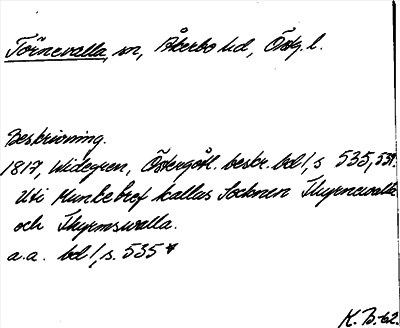 Törnevalla, sn, Åkerbo hd, Östg. l.
Beskrivning.
1817, Widegren, Östergötl. beskr. bd 1, s 535, 537.
Uti Munkebref kallas Socknen Thyrnewalla
och Thyrmswalla.
a.a. bd 1, s. 535 *
K. B-62.